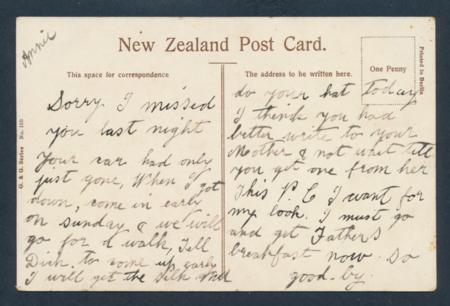 Annie
New Zealand Post Card.
This space for correspondence
The address to be written here.
One Penny
Printed in Berlin
G. & G. Series No. 110
Sorry. I missed
you last night
Your car had only
just gone, When I got
down, come in early
on sunday & we will
go for a walk, Tell
Dick to come up early
I will get the Silk and
do your hat today
I think you had
better write to your
Mother & not wait till
you get one from her
This P. C I want for
my book. I must go
and get Father's
breakfast now. So
good-by.